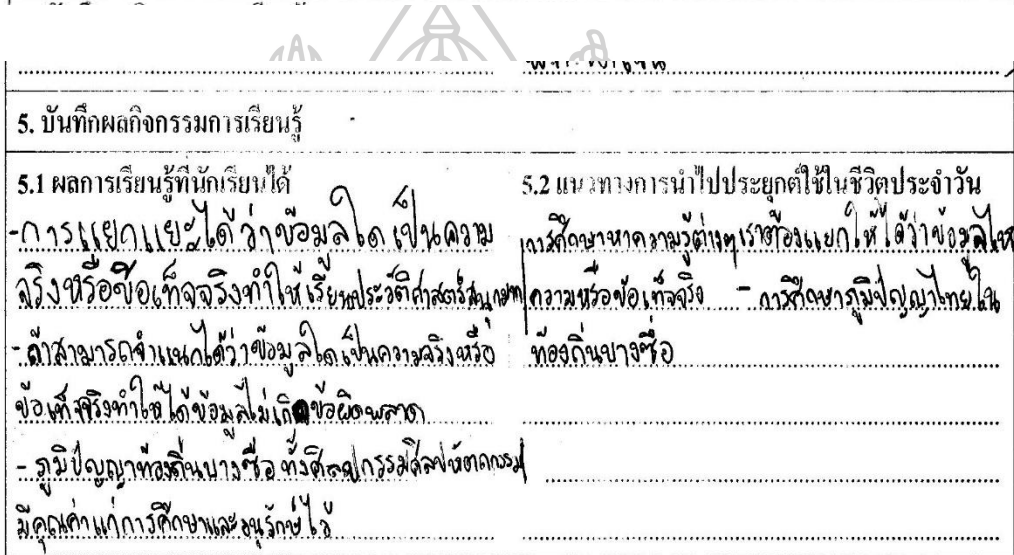 5. บันทึกผลกิจกรรมการเรียนรู้
5.1 ผลการเรียนรู้ที่นักเรียนได้
-การแยกแยะได้ว่าข้อมูลใดเป็นความ
จริงหรือข้อเท็จจริงทำให้เรียนประวัติศาสตร์สนุกมาก
-ถ้าสามารถจำแนกได้ว่าข้อมูลใดเป็นความจริงหรือ
ข้อเท็จจริงทำให้ได้ข้อมูลไม่เกิดข้อผิดพลาด
- ภูมิปัญญาท้องถิ่นบางซื่อ ทั้งศิลปกรรมศิลปหัตถกรรม
มีคุณค่าแก่การศึกษาและอนุรักษ์ไว้
5.2 แนวทางการนำไปประยุกต์ใช้ในชีวิตประจำวัน
การศึกษาหาความรู้ต่างๆเราต้องแยกให้ได้ว่าข้อมูลไหน
ความหรือข้อเท็จจริง - การศึกษาภูมิปัญญาไทยใน
ท้องถิ่นบางซื่อ